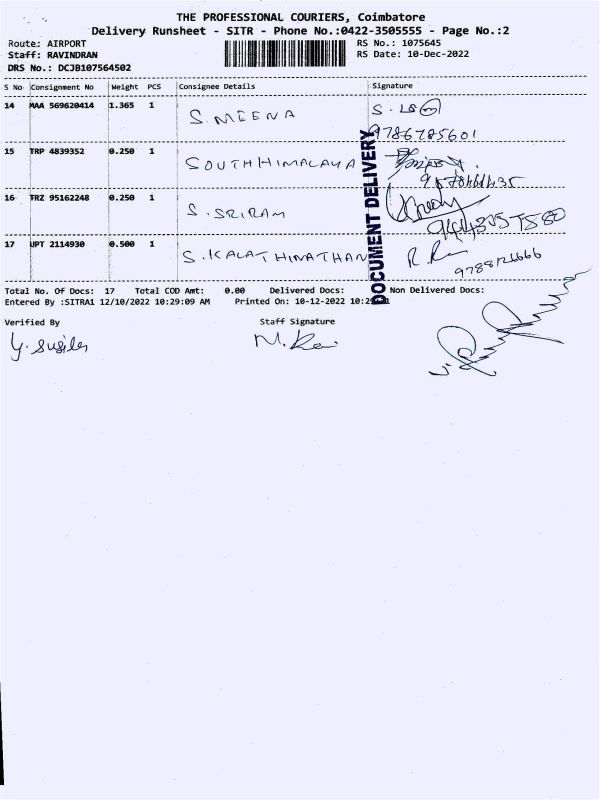 THE PROFESSIONAL COURIERS, Coimbatore
Delivery Runsheet - SITR - Phone No.:0422-3505555 - Page No.:2
Route: AIRPORT RS No.: 1075645
Staff: RAVINDRAN RS Date: 10-Dec-2022
DRS No.: DCJB107564502
S No Consignment No Weight PCS Consignee Details Signature
14 MAA 569620414 1.365 1 S. MEENA
9786785601
15 TRP 4839352 0.250 1 SOUTH HIMALAYA
16 TRZ 95162248 0.250 1 S. SRIRAM
17 UPT 2114930 0.500 1 S. KALATHINATHAN
DOCUMENT DELIVERY
Total No. Of Docs: 17 Total COD Amt: 0.00 Delivered Docs: Non Delivered Docs:
Entered By :SITRA1 12/10/2022 10:29:09 AM Printed On: 10-12-2022
Verified By Staff Signature